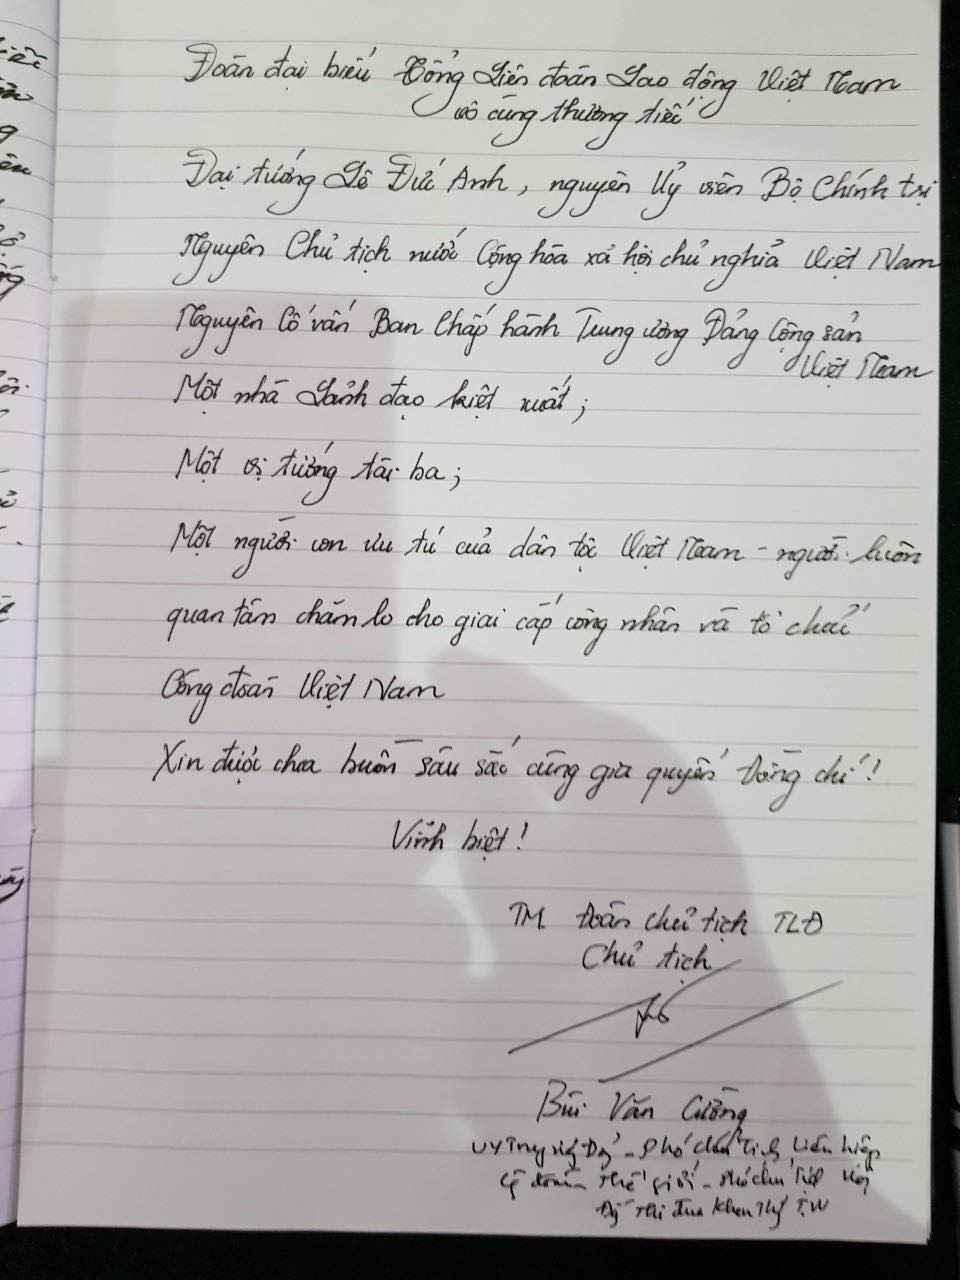 Đoàn đại biểu Tổng Liên đoàn Lao động Việt Nam
vô cùng thương tiếc
Đại tướng Lê Đức Anh, nguyên Uỷ viên Bộ Chính trị
Nguyên Chủ tịch nước Cộng hòa xã hội chủ nghĩa Việt Nam
Nguyên Cố vấn Ban Chấp hành Trung ương Đảng Cộng sản
Việt Nam
Một nhà Lãnh đạo kiệt xuất;
Một vị tướng tài ba;
Một người con ưu tú của dân tộc Việt Nam - người luôn
quan tâm chăm lo cho giai cấp công nhân và tổ chức
Công đoàn Việt Nam
Xin được chia buồn sâu sắc cùng gia quyến đồng chí!
Vĩnh biệt!
TM. Đoàn chủ tịch TLĐ
Chủ tịch
Bùi Văn Cường
UV Đảng - Phó chủ tịch Liên hiệp
đoàn thế giới - Phó chủ tịch
Thi đua Khen T.W